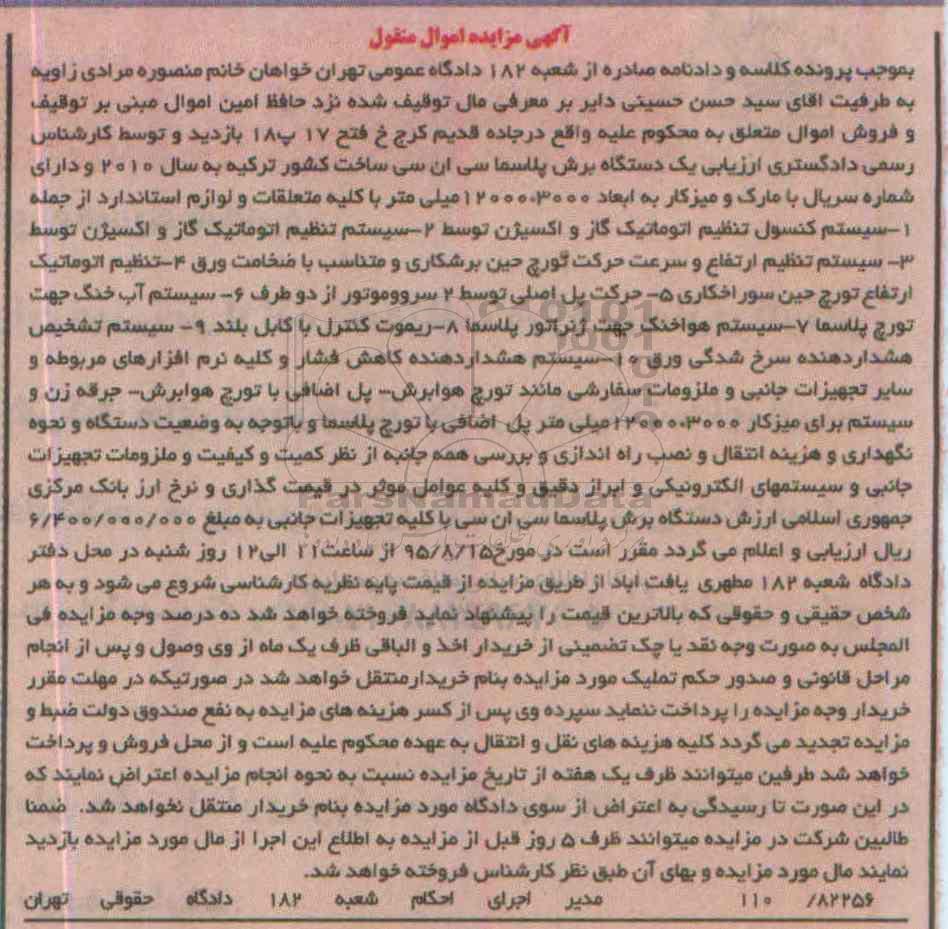 آگهی مزایده اموال منقول
بموجب پرونده کلاسه و دادنامه صادره از شعبه ۱۸۲ دادگاه عمومی تهران خواهان خانم منصوره مرادی زاویه
به طرفیت اقای سید حسن حسینی دایر بر معرفی مال توقیف شده نزد حافظ امین اموال مبنی بر توقیف
و فروش اموال متعلق به محکوم علیه واقع درجاده قدیم کرج خ فتح ۱۷ پ۱۸ بازدید و توسط کارشناس
رسمی دادگستری ارزیابی یک دستگاه برش پلاسما سی ان سی ساخت کشور ترکیه به سال ۲۰۱۰ و دارای
شماره سریال با مارک و میزکار به ابعاد ۳۰۰۰*۱۲۰۰۰ میلی متر با کلیه متعلقات و لوازم استاندارد از جمله
۱-سیستم کنسول تنظیم اتوماتیک گاز و اکسیژن توسط ۲-سیستم تنظیم اتوماتیک گاز و اکسیژن توسط
۳- سیستم تنظیم ارتفاع و سرعت حرکت گورچ حین برشکاری و متناسب با ضخامت ورق ۴-تنظیم اتوماتیک
ارتفاع تورچ حین سوراخکاری ۵- حرکت پل اصلی توسط ۲ سرووموتور از دو طرف ۶- سیستم آب خنگ جهت
تورچ پلاسما ۷-سیستم هواخنک جهت ژنراتور پلاسما ۸-ریموت کنترل با کابل بلند ۹- سیستم تشخیص
هشداردهنده سرخ شدگی ورق ۱۰-سیستم هشداردهنده کاهش فشار و کلیه نرم افزارهای مربوطه و
سایر تجهیزات جانبی و ملزومات سفارشی مانند تورچ هوابرش-- پل اضافی با تورچ هوابرش-- جرقه زن و
سیستم برای میزکار ۳۰۰۰*۱۲۰۰۰ میلی متر پل اضافی با تورچ پلاسما و باتوجه به وضعیت دستگاه و نحوه
نگهداری و هزینه انتقال و نصب راه اندازی و بررسی همه جانبه از نظر کمیت و کیفیت و ملزومات تجهیزات
جانبی و سیستمهای الکترونیکی و ابراز دقیق و کلیه عوامل موثر در قیمت گذاری و نرخ ارز بانک مرکزی
جمهوری اسلامی ارزش دستگاه برش پلاسما سی ان سی با کلیه تجهیزات جانبی به مبلغ ۶/۴۰۰/۰۰۰/۰۰۰
ریال ارزیابی و اعلام می گردد مقرر است در مورخ۹۵/۸/۱۵ از ساعت۱۱ الی۱۲ روز شنبه در محل دفتر
دادگاه شعبه ۱۸۲ مطهری یافت آباد از طریق مزایده از قیمت پایه نظریه کارشناسی شروع می شود و به هر
شخص حقیقی و حقوقی که بالاترین قیمت را پیشنهاد نماید فروخته خواهد شد ده درصد وجه مزایده فی
المجلس به صورت وجه نقد یا چک تضمینی از خریدار اخذ و الباقی ظرف یک ماه از وی وصول و پس از انجام
مراحل قانونی و صدور حکم تملیک مورد مزایده بنام خریدارمنتقل خواهد شد در صورتیکه در مهلت مقرر
خریدار وجه مزایده را پرداخت ننماید سپرده وی پس از کسر هزینه های مزایده به نفع صندوق دولت ضبط و
مزایده تجدید می گردد کلیه هزینه های نقل و انتقال به عهده محکوم علیه است و از محل فروش و پرداخت
خواهد شد طرفین میتوانند ظرف یک هفته از تاریخ مزایده نسبت به نحوه انجام مزایده اعتراض نمایند که
در این صورت تا رسیدگی به اعتراض از سوی دادگاه مورد مزایده بنام خریدار منتقل نخواهد شد. ضمنا
طالبین شرکت در مزایده میتوانند ظرف ۵ روز قبل از مزایده به اطلاع این اجرا از مال مورد مزایده بازدید
نمایند مال مورد مزایده و بهای آن طبق نظر کارشناس فروخته خواهد شد.
۸۲۲۵۶/ ۱۱۰ مدیر اجرای احکام شعبه ۱۸۲ دادگاه حقوقی تهران
ParsNamadData